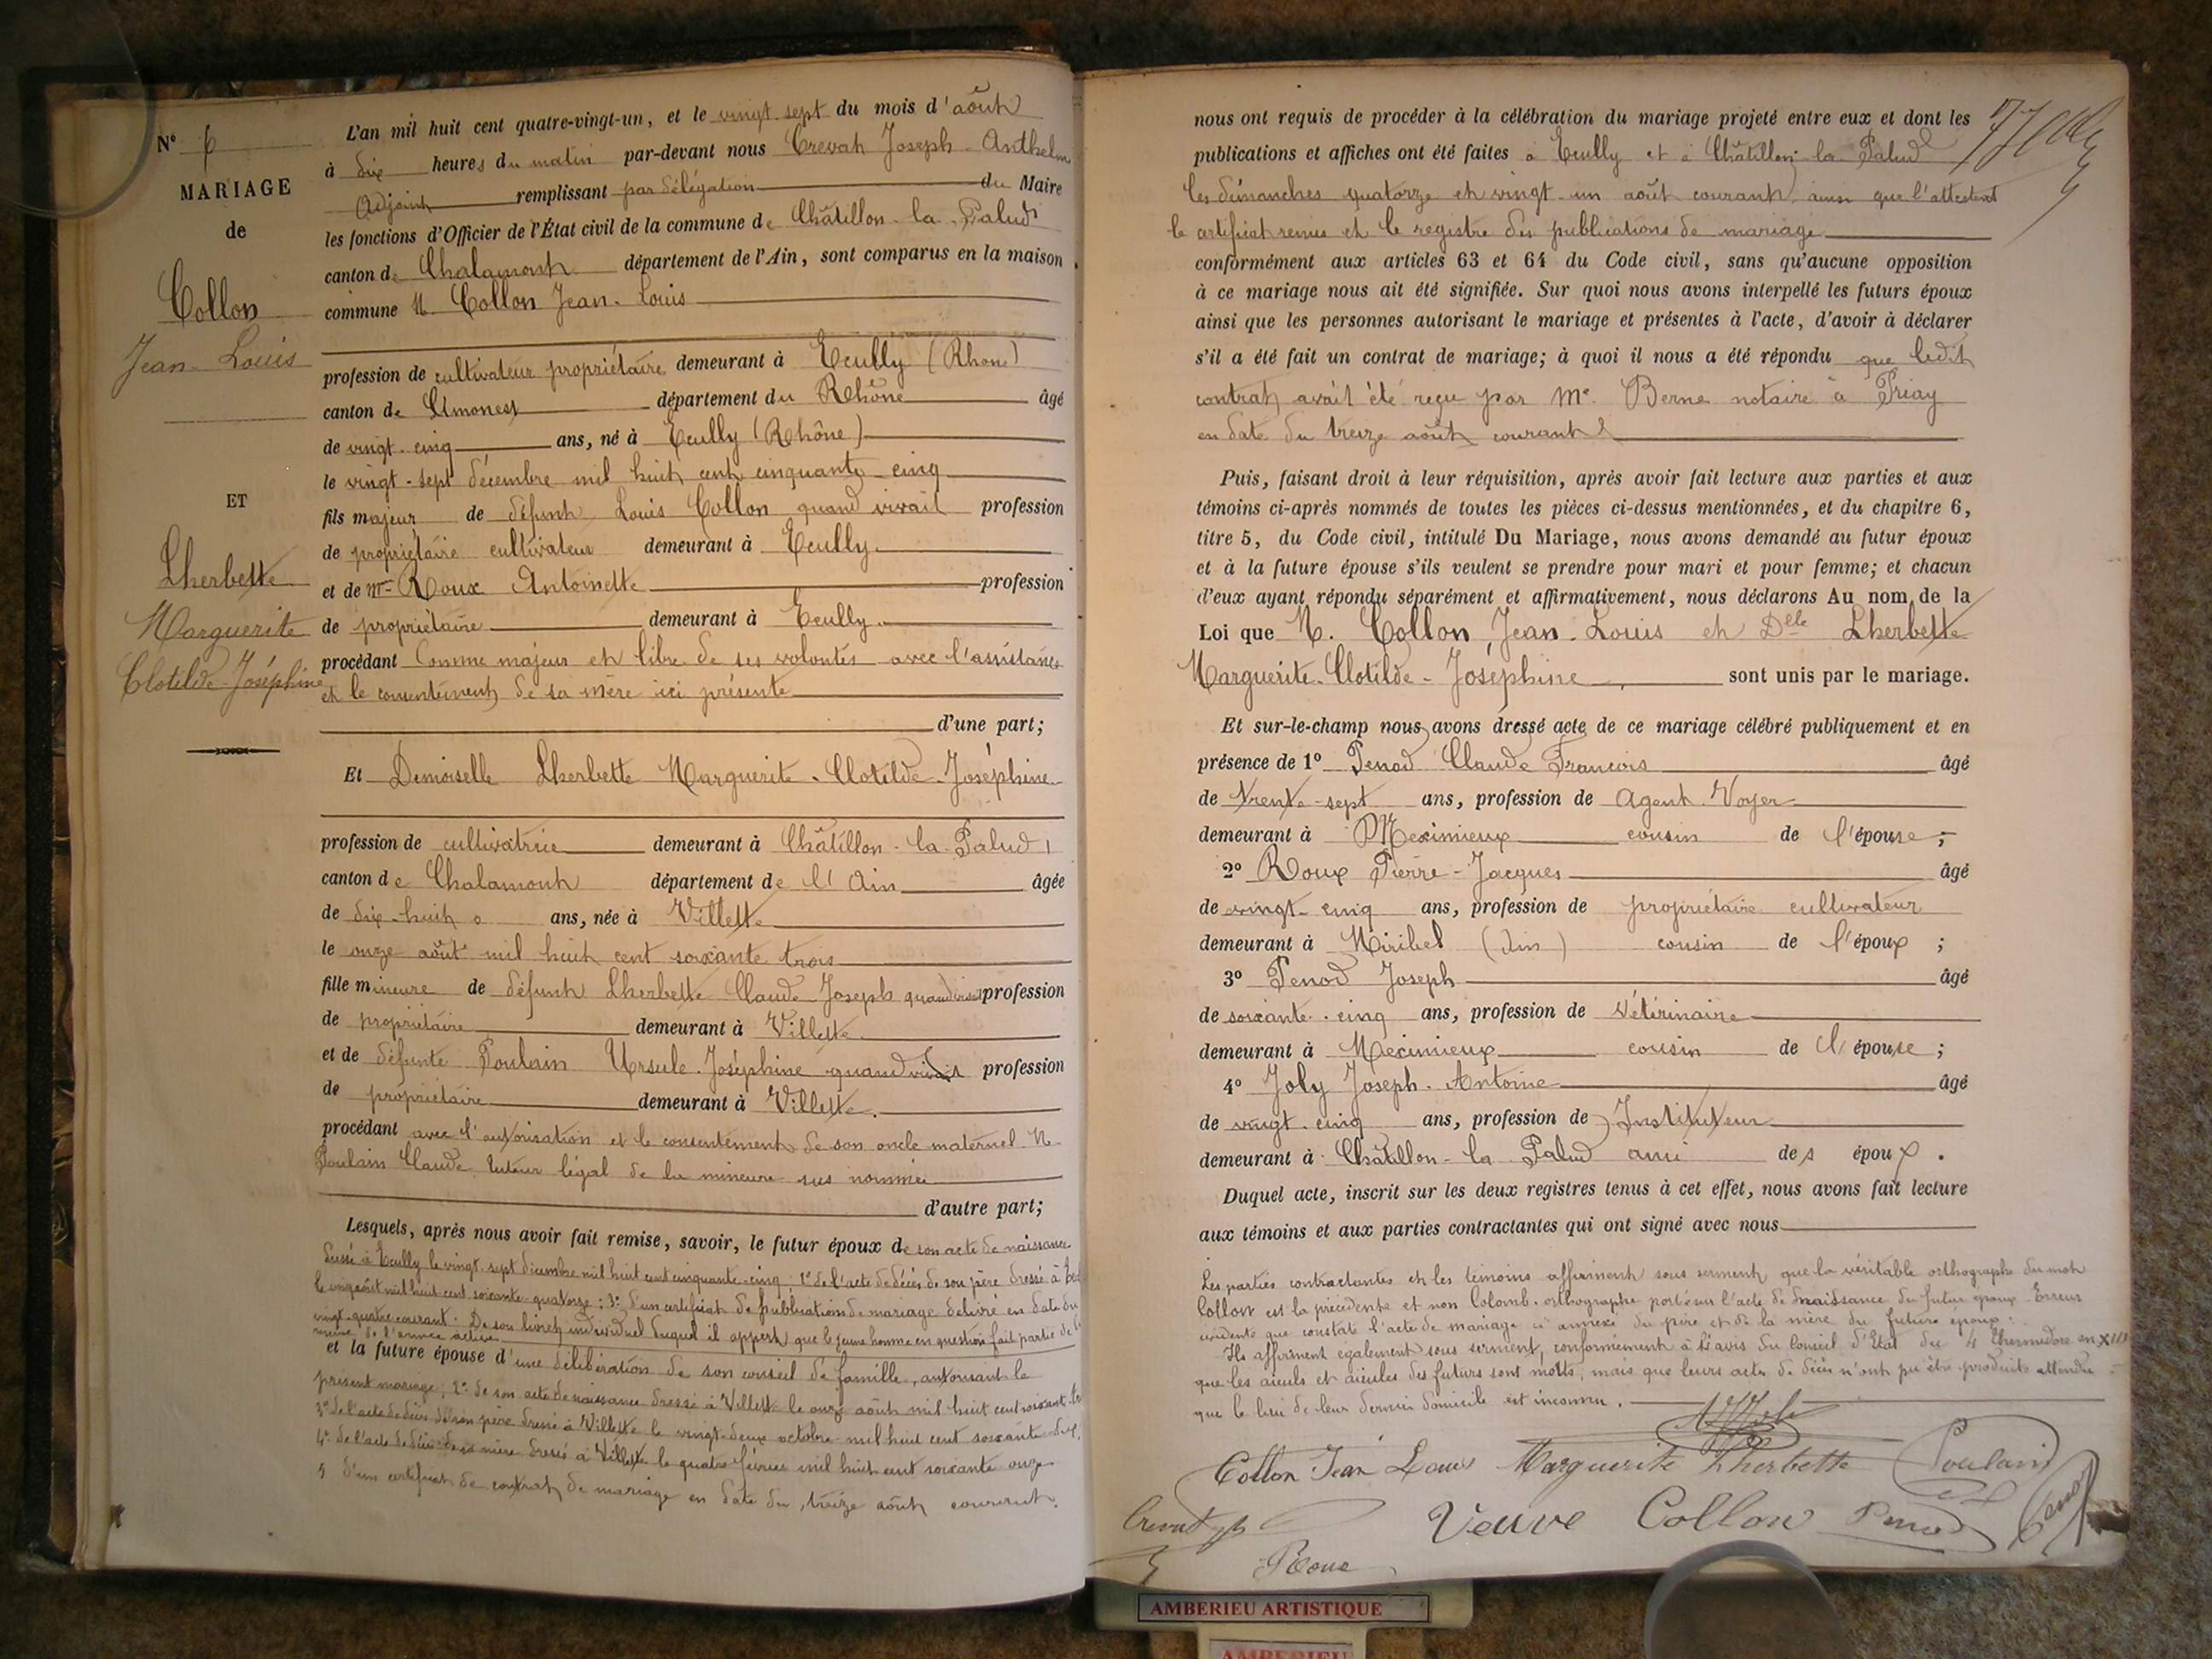 N° 6
MARIAGE
de
Collon
Jean-Louis
ET
Lherbette
Marguerite
Clotilde-Joséphine
L'an mil huit cent quatre-vingt-un, et le vingt-sept du mois d'août
à dix heures du matin par-devant nous Crevat Joseph-Anthelm
Adjoint remplissant par délégation du Maire
les fonctions d'Officier de l'État civil de la commune de Châtillon-la-Palud
canton de Chalamont département de l'Ain, sont comparus en la maison
commune M. Collon Jean-Louis
profession de cultivateur propriétaire demeurant à Ecully (Rhône)
canton de Limonest département du Rhône âgé
de vingt-cinq ans, né à Ecully (Rhône)
le vingt-sept décembre mil huit cent cinquante-cinq
fils majeur de défunt Louis Collon quand vivait profession
de propriétaire cultivateur demeurant à Ecully.
et de Me Roux Antoinette profession
de propriétaire demeurant à Ecully.
procédant Comme majeur et libre de ses volontés avec l'assistance
et le consentement de sa mère ici présente
d'une part;
Et Demoiselle Lherbette Marguerite-Clotilde-Joséphine
profession de cultivatrice demeurant à Châtillon-la-Palud
canton de Chalamont département de l'Ain âgée
de dix-huit ans, née à Villette
le onze août mil huit cent soixante trois
fille mineure de défunt Lherbette Claude Joseph quand vivait profession
de propriétaire demeurant à Villette
et de défunte Poulain Ursule-Joséphine quand vivait profession
de propriétaire demeurant à Villette.
procédant avec l'autorisation et le consentement de son oncle maternel M.
Poulain Claude tuteur légal de la mineure sus nommée
d'autre part;
Lesquels, après nous avoir fait remise, savoir, le futur époux de son acte de naissance
dressé à Ecully le vingt-sept décembre mil huit cent cinquante-cinq 2° de l'acte de décès de son père dressé à
le onze août mil huit cent soixante-quatorze; 3° d'un certificat de publications de mariage délivré en date du
vingt-quatre courant. De son livret individuel duquel il appert que le jeune homme en question fait partie de la
réserve de l'armée active
et la future épouse d'une délibération de son conseil de famille, autorisant le
présent mariage; 2° de son acte de naissance dressé à Villette le onze août mil huit cent soixante
3° de l'acte de décès de son père dressé à Villette le vingt-deux octobre mil huit cent soixante
4° de l'acte de décès de sa mère dressé à Villette le quatre février mil huit cent soixante onze
5 d'un certificat de contrat de mariage en date du treize août courant.
nous ont requis de procéder à la célébration du mariage projeté entre eux et dont les
publications et affiches ont été faites à Ecully et à Châtillon-la-Palud
les dimanches quatorze et vingt-un août courant ainsi que l'attestent
le certificat remis et le registre des publications de mariage
conformément aux articles 63 et 64 du Code civil, sans qu'aucune opposition
à ce mariage nous ait été signifiée. Sur quoi nous avons interpellé les futurs époux
ainsi que les personnes autorisant le mariage et présentes à l'acte, d'avoir à déclarer
s'il a été fait un contrat de mariage; à quoi il nous a été répondu que ledit
contrat avait été reçu par Me Berne notaire à Priay
en date du treize août courant
Puis, faisant droit à leur réquisition, après avoir fait lecture aux parties et aux
témoins ci-après nommés de toutes les pièces ci-dessus mentionnées, et du chapitre 6,
titre 5, du Code civil, intitulé Du Mariage, nous avons demandé au futur époux
et à la future épouse s'ils veulent se prendre pour mari et pour femme; et chacun
d'eux ayant répondu séparément et affirmativement, nous déclarons Au nom de la
Loi que M. Collon Jean-Louis et Delle Lherbette
Marguerite-Clotilde-Joséphine sont unis par le mariage.
Et sur-le-champ nous avons dressé acte de ce mariage célébré publiquement et en
présence de 1° Penod Claude François âgé
de trente-sept ans, profession de Agent-Voyer
demeurant à Meximieux cousin de l'épouse;
2° Roux Pierre-Jacques âgé
de vingt-cinq ans, profession de propriétaire cultivateur
demeurant à Miribel (Ain) cousin de l'époux;
3° Penod Joseph âgé
de soixante-cinq ans, profession de Vétérinaire
demeurant à Meximieux cousin de l'épouse;
4° Joly Joseph-Antoine âgé
de vingt-cinq ans, profession de Instituteur
demeurant à Châtillon-la-Palud ami des époux.
Duquel acte, inscrit sur les deux registres tenus à cet effet, nous avons fait lecture
aux témoins et aux parties contractantes qui ont signé avec nous
Les parties contractantes et les témoins affirment sous serment que la véritable orthographe du mot
Collon est la précédente et non Colomb. orthographe porté sur l'acte de naissance du futur époux. Erreur
évidente que constate l'acte de mariage ci annexé du père et de la mère du futur époux:
Ils affirment également sous serment, conformément à l'avis du Conseil d'Etat du 4 thermidore an XIII
que les aïeuls et aïeules des futurs sont morts, mais que leurs actes de décès n'ont pu être produits attendu
que le lieu de leur dernier domicile est inconnu.
Collon Jean Louis Marguerite Lherbette Poulain
Crevat Veuve Collon Penod Penod
Roux
AMBERIEU ARTISTIQUE
AMBERIEU